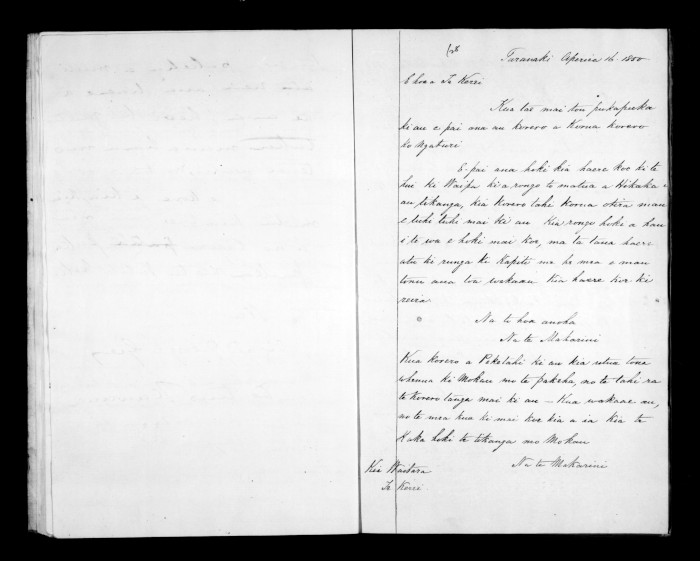 Taranaki Aperira 16. 1850
E hoa e Te Kerei
Kua tae mai tou pukapuka
ki au e pai ana au korero a Korua korero
ko Ngatuni
E pai ana hoki kia haere koe ki te
hue ki Waipa kia rongo te matua a Hikaka
au tikanga, kia korero tahi korua otira man
e tuhi tuhi mai ki au. Kia rongo hoki a hau
i te wa e hoki mai koe, ma ta taua haere
atu ki runga ki Kapiti me he mea e mau
tonu ana toa wakaaro kia haere koe ki
reira
Na to hoa aroha
Na te Makarini
Kua korero a Piketahi ki au kia utua tona
whenua ki Mokau mo te pakeha, no te tahi ra
te korero tanga mai ki au — Kua wakaae au,
no te mea kua ki mai koe kia a ia kia te
Kaka hoki te tikanga mo Mokau
Na te Makarini
Kia Waitara
Te Kerei